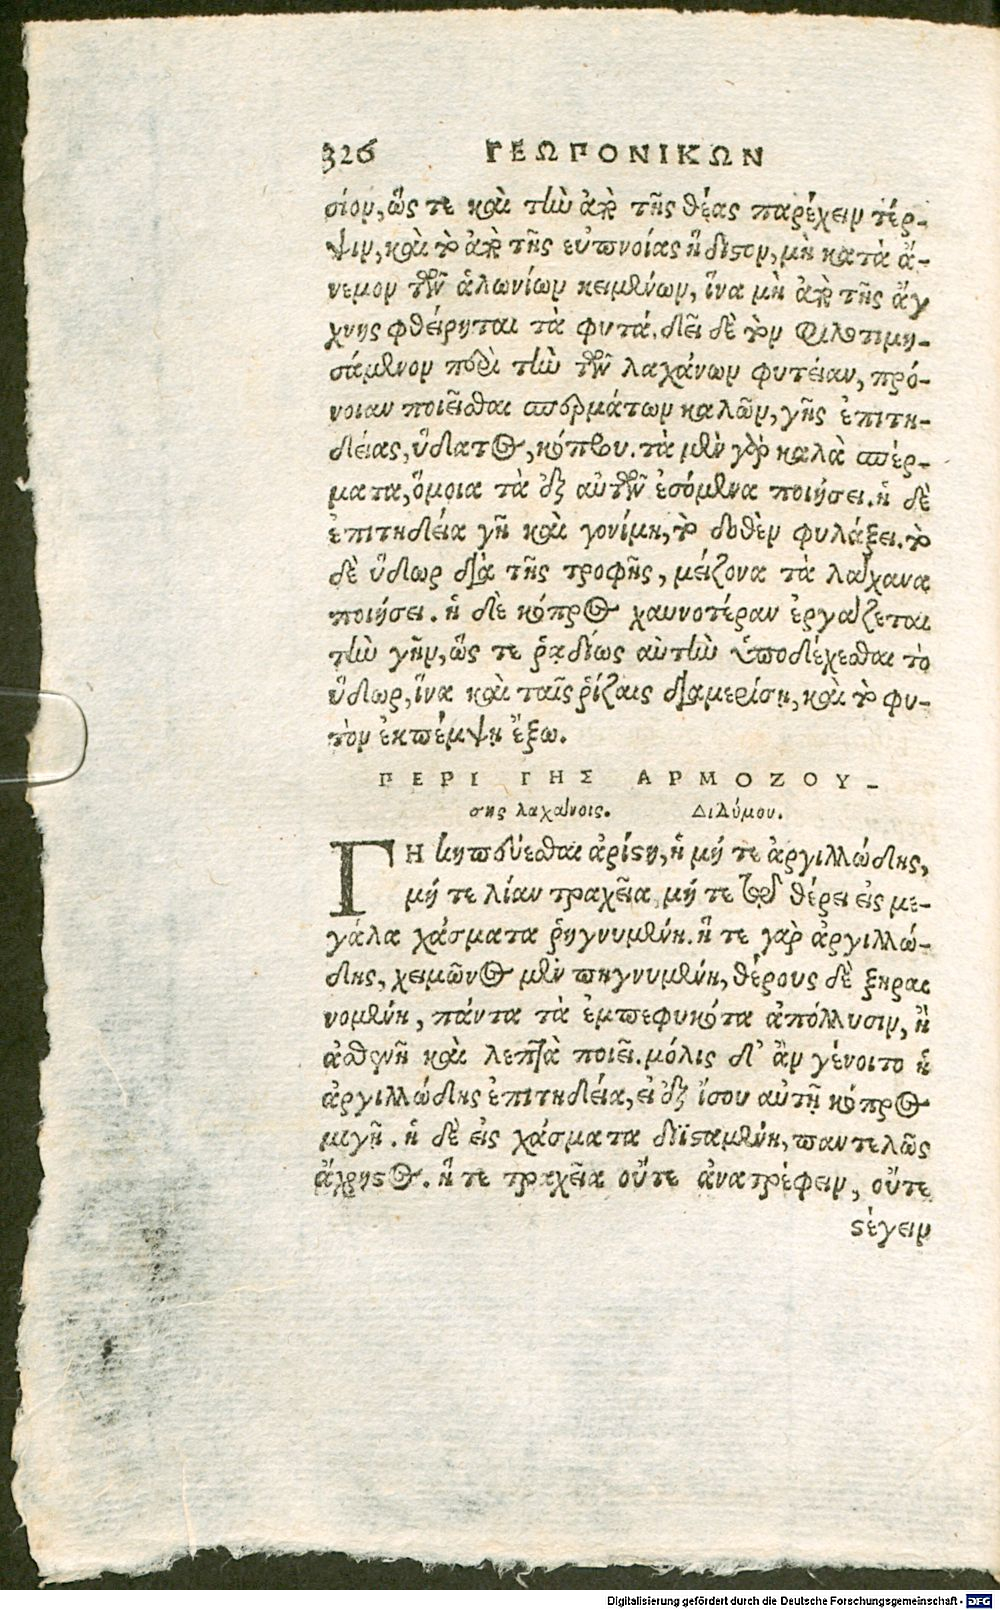 326 ΓΕΩΠΟΝΙΚΩΝ
σίον, ὥς τε καὶ τὴν ἀπὸ τῆς θέας παρέχειν τέρ-
ψιν, καὶ τὸ ἀπὸ τῆς εὐπνοίας ἥδιστον, μὴ κατὰ ἄ-
νεμον τῶν ἁλωνίων κειμένων, ἵνα μὴ ἀπὸ τῆς ἄχ
χνης φθείρηται τὰ φυτά. δεῖ δὲ τὸν φιλοτιμη-
σάμενον περὶ τὴν τῶν λαχάνων φυτείαν, πρό-
νοιαν ποιεῖσθαι σπερμάτων καλῶν, γῆς ἐπιτη-
δείας, ὕδατος, κόπρου. τὰ μὲν γὰρ καλὰ σπέρ-
ματα, ὅμοια τὰ ἐξ αὐτῶν ἐσόμενα ποιήσει. ἡ δὲ
ἐπιτηδεία γῆ καὶ γονίμη, τὸ δοθὲν φυλάξει. τὸ
δὲ ὕδωρ διὰ τῆς τροφῆς, μείζονα τὰ λάχανα
ποιήσει. ἡ δὲ κόπρος χαυνοτέραν ἐργάζεται
τὴν γῆν, ὥς τε ῥᾳδίως αὐτὴν ὑποδέχεσθαι τὸ
ὕδωρ, ἵνα καὶ ταῖς ῥίζαις διαμερίσῃ, καὶ τὸ φυ-
τὸν ἐκπέμψῃ ἔξω.
ΠΕΡΙ ΓΗΣ ΑΡΜΟΖΟΥ-
σης λαχάνοις. Διδύμου.
ΓΗ κηπεύεσθαι ἀρίστη, ἡ μή τε ἀργιλλώδης,
μή τε λίαν τραχεῖα, μή τε ἐν θέρει εἰς με-
γάλα χάσματα ῥηγνυμένη. ἥ τε γὰρ ἀργιλλώ-
δης, χειμῶνος μὲν πηγνυμένη, θέρους δὲ ξηραι
νομένη, πάντα τὰ ἐμπεφυκότα ἀπόλλυσιν, ἢ
ἀσθενῆ καὶ λεπτὰ ποιεῖ. μόλις δ' ἂν γένοιτο ἡ
ἀργιλλώδης ἐπιτηδεία, εἰ ἐξ ἴσου αὐτῇ κόπρος
μιγῇ. ἡ δὲ εἰς χάσματα διϊσταμένη, παντελῶς
ἄχρηστος. ἥ τε τραχεῖα οὔτε ἀνατρέφειν, οὔτε
στέγειν
Digitalisierung gefördert durch die Deutsche Forschungsgemeinschaft - DFG